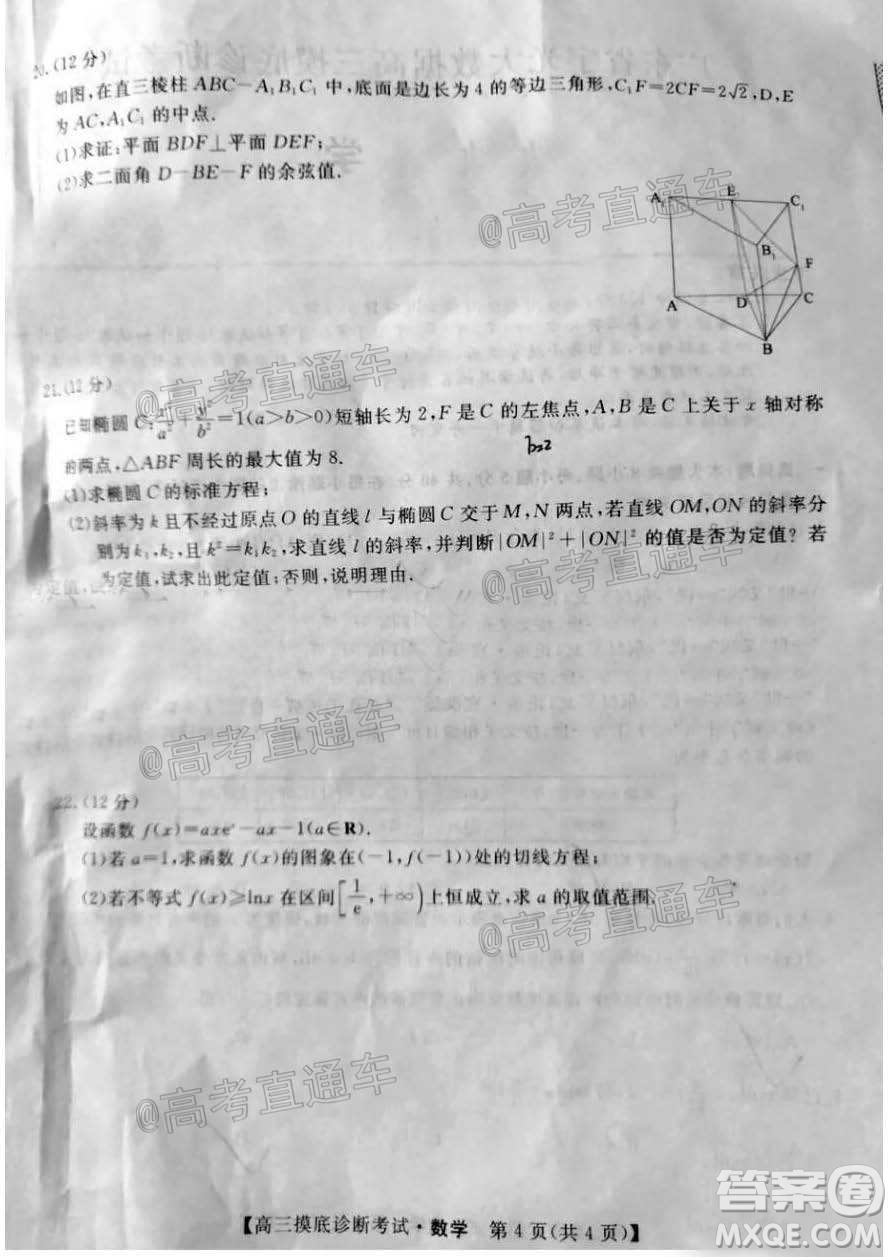 20.(12分)
如图,在直三棱柱ABC-A₁B₁C₁中,底面是边长为4的等边三角形,C₁F=2CF=2√2,D,E
为AC,A₁C₁的中点.
(1)求证:平面BDF⊥平面DEF;
(2)求二面角D-BE-F的余弦值.
@高考直通车
A₁ E C₁
B₁
F
A D C
B
@高考直通车
21.(12分)
已知椭圆C:x²/a²+y²/b²=1(a>b>0)短轴长为2,F是C的左焦点,A,B是C上关于x轴对称
的两点,△ABF周长的最大值为8.
(1)求椭圆C的标准方程;
(2)斜率为k且不经过原点O的直线l与椭圆C交于M,N两点,若直线OM,ON的斜率分
别为k₁,k₂,且k²=k₁k₂,求直线l的斜率,并判断|OM|²+|ON|²的值是否为定值?若
为定值,试求出此定值;否则,说明理由.
@高考直通车
@高考直通车
22.(12分)
设函数f(x)=axeˣ-ax-1(a∈R).
(1)若a=1,求函数f(x)的图象在(-1,f(-1))处的切线方程;
(2)若不等式f(x)≥lnx在区间[1/e,+∞)上恒成立,求a的取值范围.
@高考直通车
@高考直通车
【高三摸底诊断考试·数学 第4页(共4页)】
答案圈
MXQE.COM